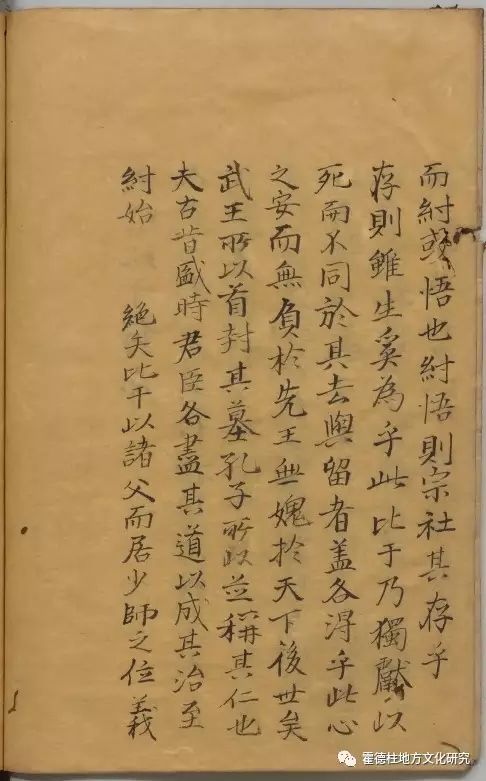 而紂或悟也紂悟則宗社其存乎
存則雖生奚為乎此比干乃獨獻以
死而不同於其去與留者盖各得乎此心
之安而無負於先王無媿於天下後世矣
武王所以首封其墓孔子所以並稱其仁也
夫古昔盛時君臣各盡其道以成其治至
紂始 絕矣比干以諸父而居少師之位義
霍德柱地方文化研究